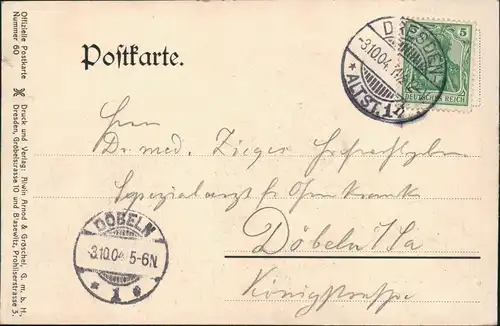 Offizielle Postkarte
Nummer 60
Druck und Verlag: Alwin Arnold & Gröschel G. m. b. H.
Dresden, Grobelstrasse 10 und Blasewitz, Prohliserstrasse 3.
Postkarte.
DRESDEN
3.10.04.
* ALTST. 14
5
DEUTSCHES REICH
Herrn
Dr. med. Zieger
Spezialarzt f. Ohrenkrankh
Döbeln i/Sa
Königstrasse
DÖBELN
3.10.04. 5-6N
* 1 *